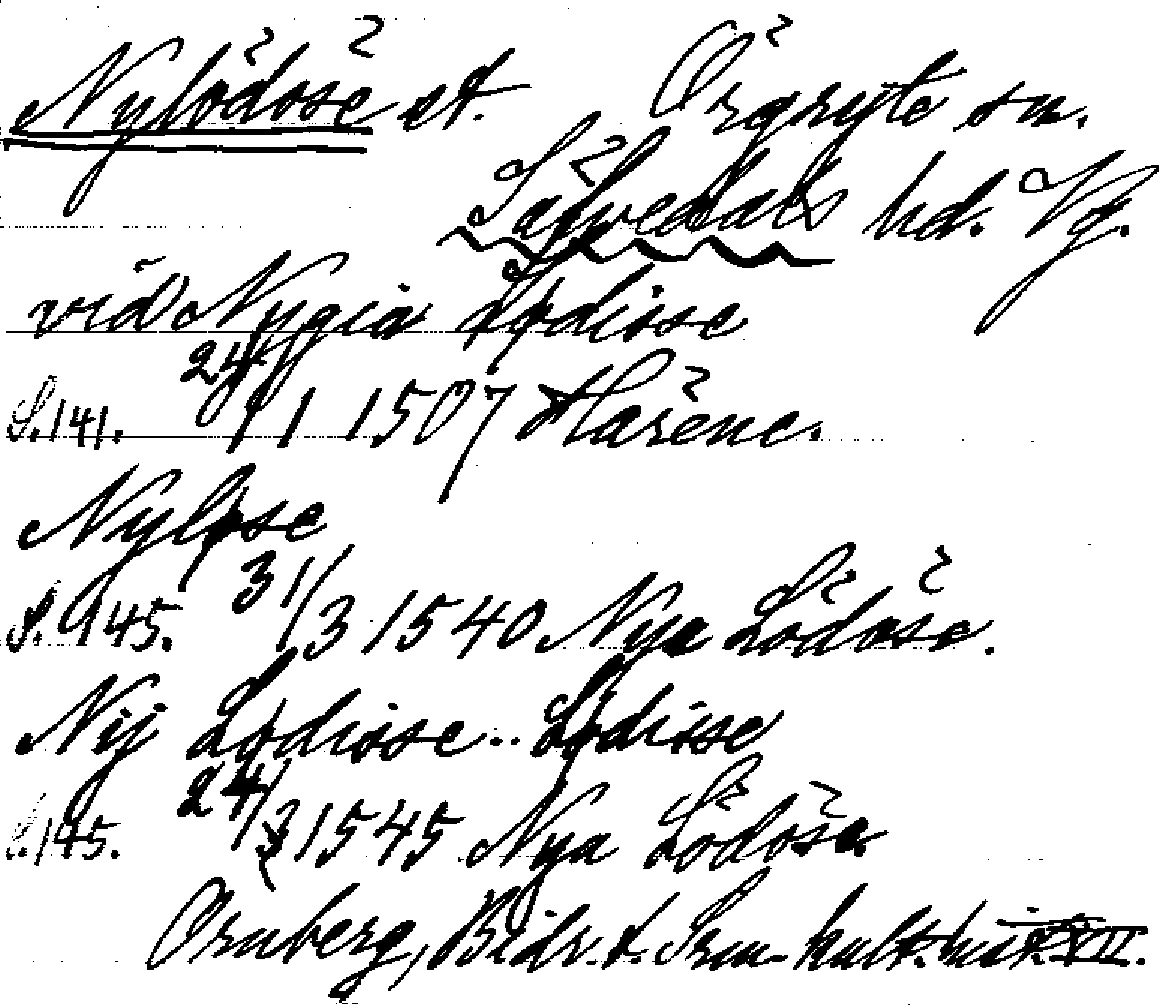 Nylödöse st. Örgryte sn.
Sävedals hd. Vg.
vid Nygia Lødisse
S. 141. 24/1 1507 Harene.
Nyløse
S. 145. 31/3 1540 Nya Lödöse.
Nij Lødisse.. Lødisse
S. 145. 24/3 1545 Nya Lödöse
Örnberg, Bidr. t. Srm. kult. hist. XII.